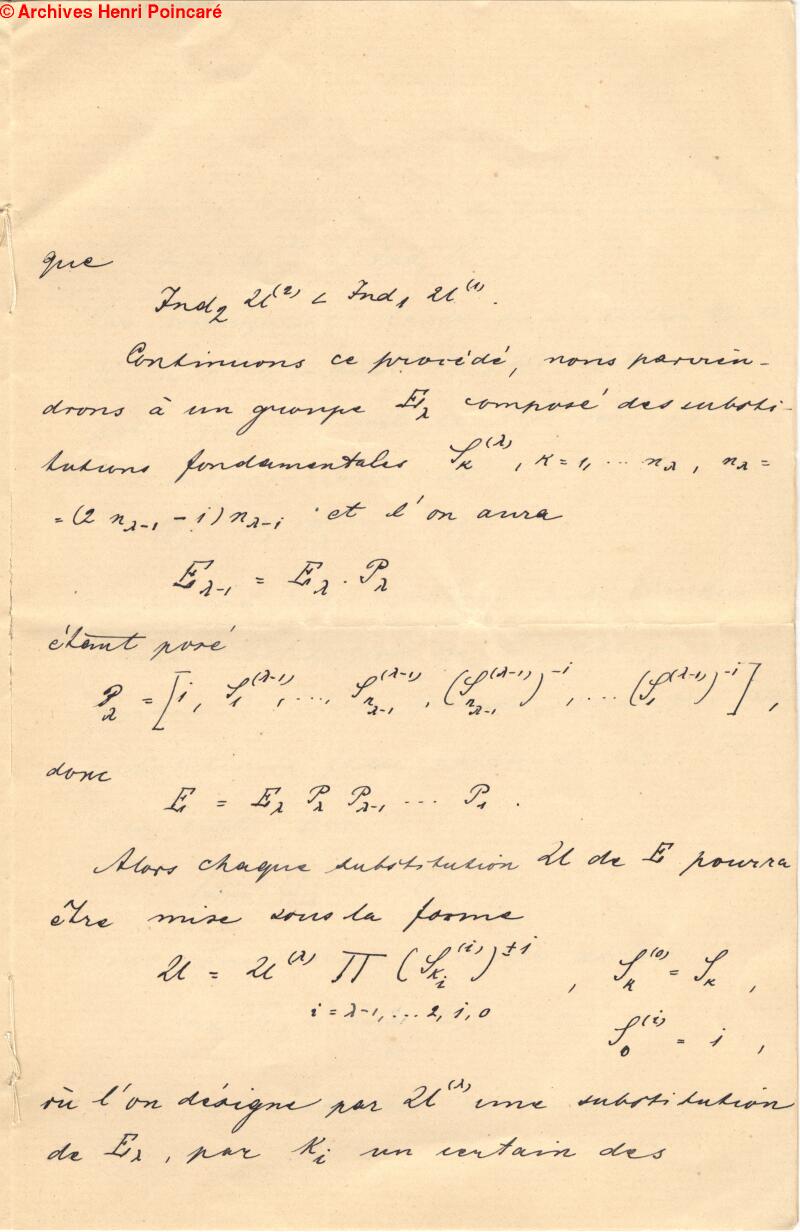 © Archives Henri Poincaré
que
Ind₂ 𝔄⁽²⁾ < Ind₁ 𝔄⁽¹⁾.
Continuons ce procédé, nous parvien-
drons à un groupe E_λ composé des substi-
tutions fondamentales S_κ^(λ), κ = 1, ... n_λ, n_λ =
= (2 n_{λ-1} - 1) n_{λ-1} et l'on aura
E_{λ-1} = E_λ . P_λ
étant posé
P_λ = [1, S_1^(λ-1), ..., S_{n_{λ-1}}^(λ-1), (S_{n_{λ-1}}^(λ-1))^{-1}, ... (S_1^(λ-1))^{-1}],
donc
E = E_λ P_λ P_{λ-1} ... P_1 .
Alors chaque substitution 𝔄 de E pourra
être mise sous la forme
𝔄 = 𝔄^(λ) ∏ (S_{κ_i}^(i))^{±1} , S_κ^(0) = S_κ ,
i = λ-1, ... 2, 1, 0
S_0^(i) = 1 ,
où l'on désigne par 𝔄^(λ) une substitution
de E_λ, par κ_i un certain des